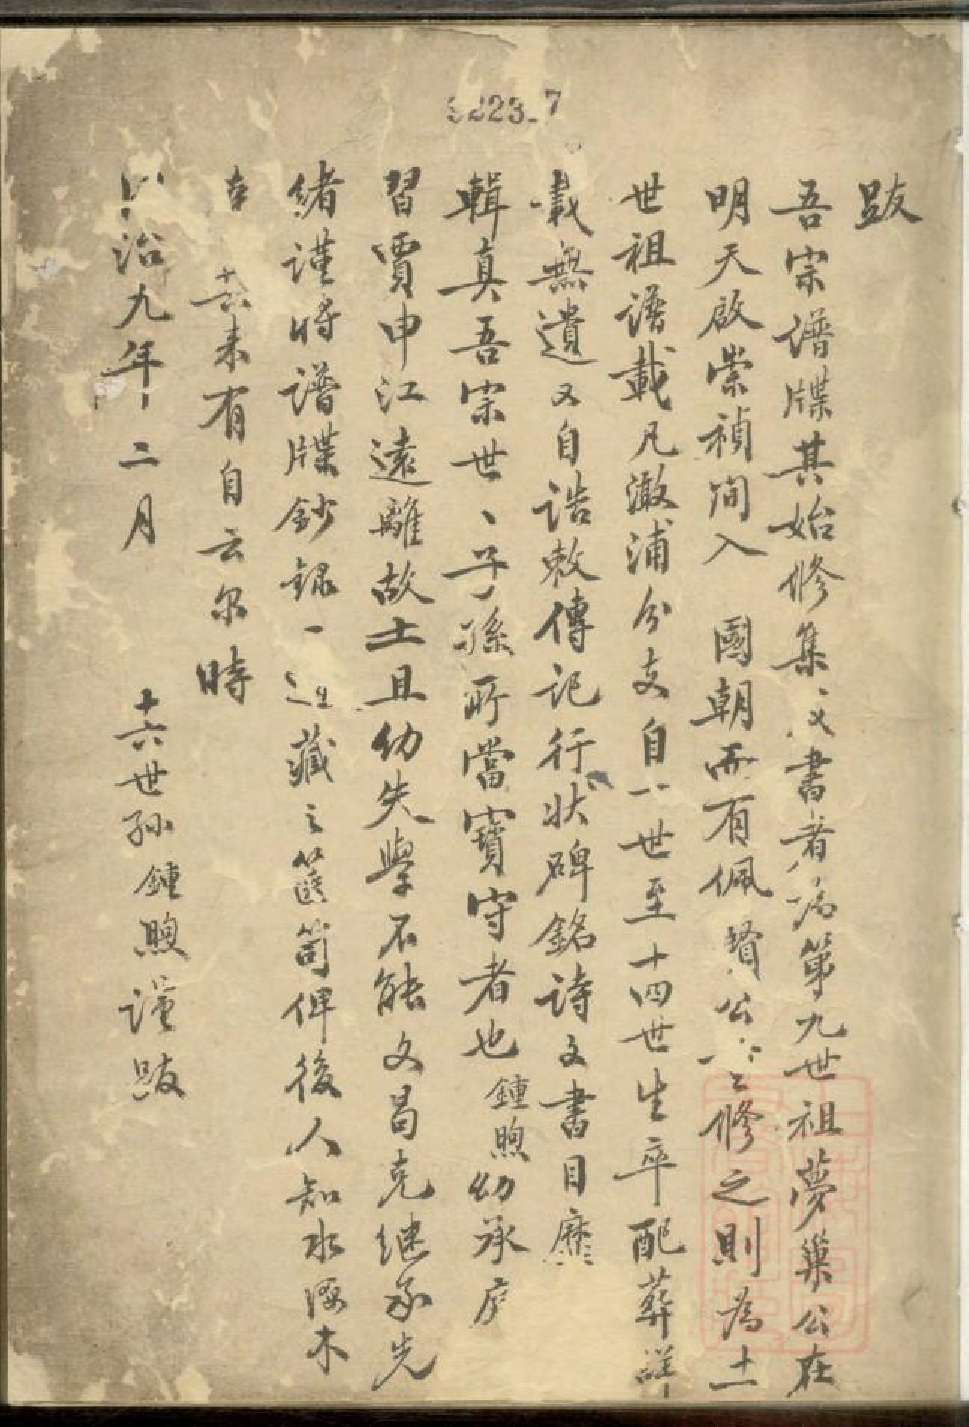 223-7
跋
吾宗譜牒其始修集文書者為第九世祖夢巢公在
明天啟崇禎間入 國朝而有佩賢公修之則為十一
世祖譜載凡澉浦分支自一世至十四世生卒配葬詳
載無遺又自誥敕傳記行狀碑銘詩文書目靡
輯真吾宗世、子孫所當寶守者也鍾煦幼承庭
習賈申江遠離故土且幼失學不能文曷克繼承先
緒謹將譜牒鈔錄一過藏之篋笥俾後人知水源木
本 其來有自云尔時
治九年二月 十六世孫鍾煦謹跋